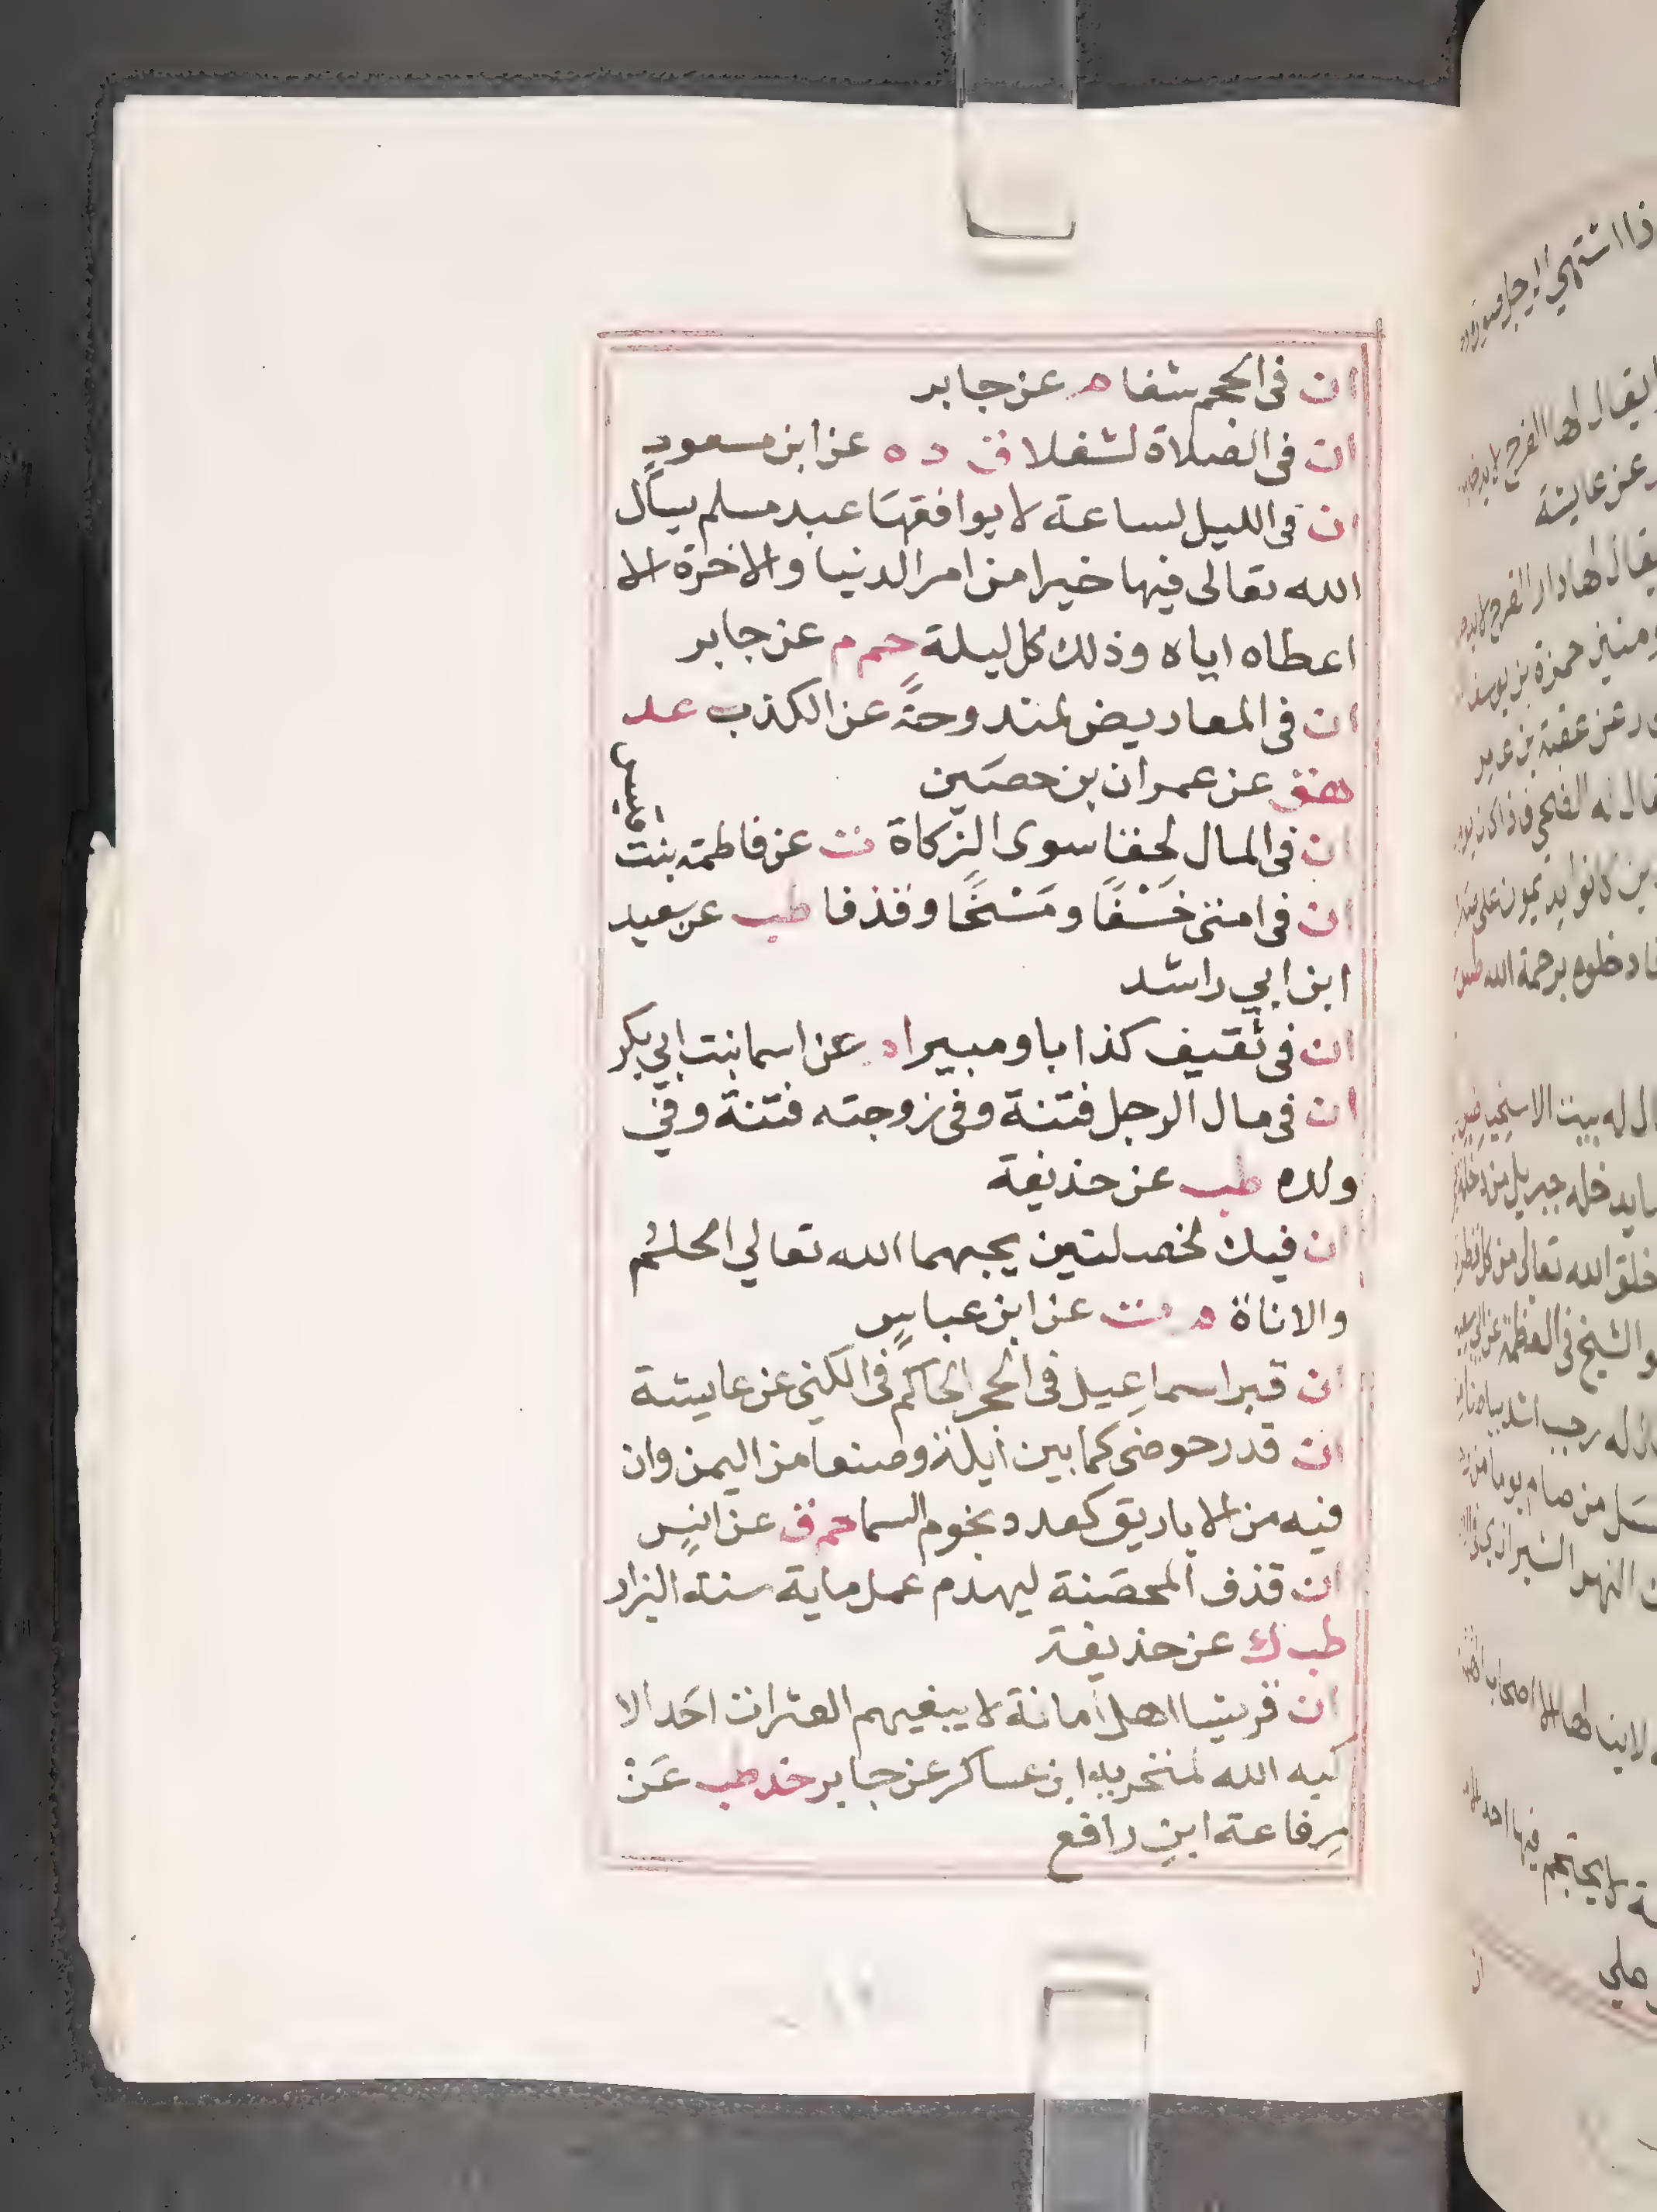 ان فى الحجم شفا م عن جابر
ان فى الصلاة لشغلا ق د ه عن ابن مسعود
ان فى الليل لساعة لا يوافقها عبد مسلم يسأل
الله تعالى فيها خيرا من امر الدنيا والاخرة الا
اعطاه اياه وذلك كل ليلة حم م عن جابر
ان فى المعاريض لمندوحة عن الكذب عد
هق عن عمران بن حصين
ان فى المال لحقا سوى الزكاة ت عن فاطمة بنت
قيس
ان فى امتى خسفا ومسخا وقذفا طب عن سعيد
ابن ابي راشد
ان فى ثقيف كذابا ومبيرا م عن اسما بنت ابي بكر
ان فى مال الرجل فتنة وفى زوجته فتنة وفي
ولده طب عن حذيفة
ان فيك لخصلتين يحبهما الله تعالي الحلم
والاناة م ت عن ابن عباس
ان قبر اسماعيل فى الحجر الحاكم فى الكنى عن عايشة
ان قدر حوضى كما بين أيلة وصنعا من اليمن وان
فيه من الاباريق كعدد نجوم السما حم ق عن انس
ان قذف المحصنة ليهدم عمل ماية سنة البزار
طب ك عن حذيفة
ان قريشا اهل أمانة لا يبغيهم العثرات احد الا
كبه الله لمنخريه ابن عساكر عن جابر خد طب عن
رفاعة ابن رافع